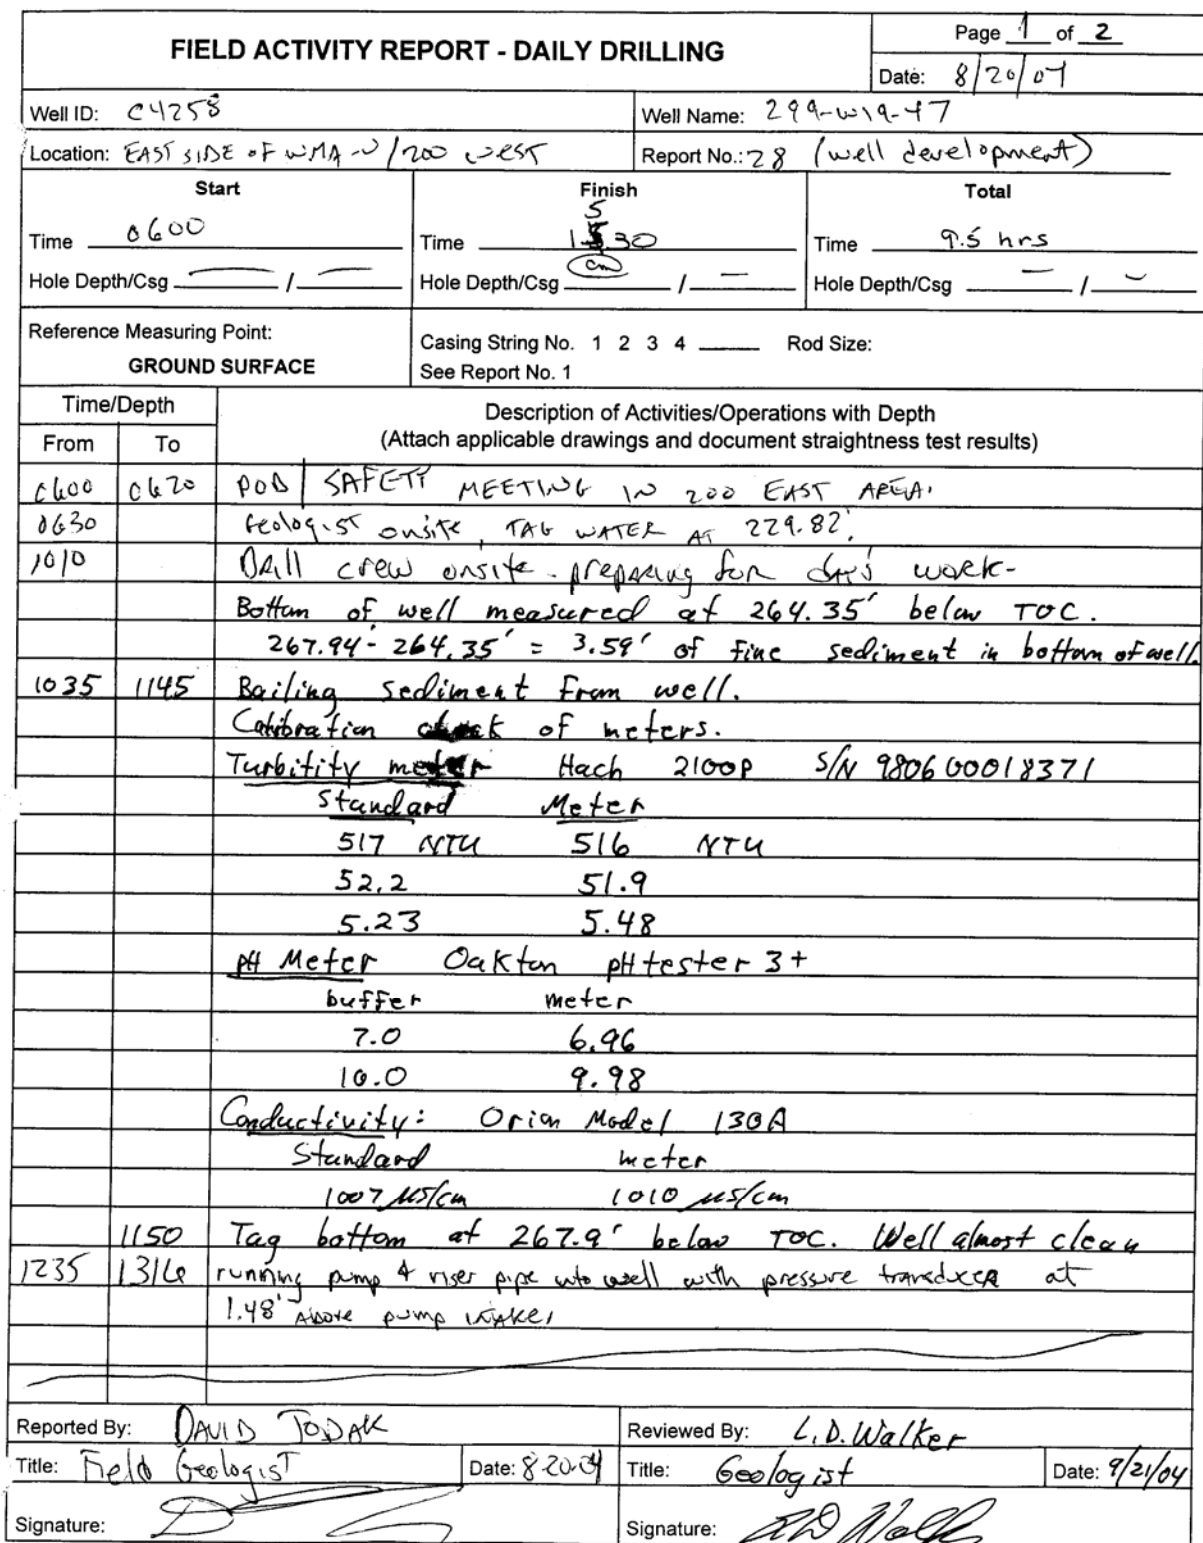 FIELD ACTIVITY REPORT - DAILY DRILLING
Page 1 of 2
Date: 8/20/04
Well ID: C4258
Well Name: 299-W19-47
Location: EAST SIDE OF WMA-U / 200 WEST
Report No.: 28 (well development)
Start
Finish
Total
Time 0600
Time 1530
Time 9.5 hrs
Hole Depth/Csg — / —
Hole Depth/Csg — / —
Hole Depth/Csg — / —
Reference Measuring Point:
GROUND SURFACE
Casing String No. 1 2 3 4 ____ Rod Size:
See Report No. 1
Time/Depth
From To
Description of Activities/Operations with Depth
(Attach applicable drawings and document straightness test results)
0600 0620 POD / SAFETY MEETING IN 200 EAST AREA.
0630 Geologist onsite, TAG WATER AT 229.82'.
1010 Drill crew onsite - preparing for day's work-
Bottom of well measured at 264.35' below TOC.
267.94' - 264.35' = 3.59' of fine sediment in bottom of well
1035 1145 Bailing sediment from well.
Calibration check of meters.
Turbitity meter Hach 2100P S/N 980600018371
Standard Meter
517 NTU 516 NTU
52.2 51.9
5.23 5.48
pH Meter Oakton pHtester 3+
buffer meter
7.0 6.96
10.0 9.98
Conductivity: Orion Model 130A
Standard meter
1007 µS/cm 1010 µS/cm
1150 Tag bottom at 267.9' below TOC. Well almost clean
1235 1316 running pump & riser pipe into well with pressure transducer at
1.48' above pump intake,
Reported By: DAVID TODAK
Reviewed By: L.D. Walker
Title: Field Geologist
Date: 8-20-04
Title: Geologist
Date: 9/21/04
Signature:
Signature: LD Walk